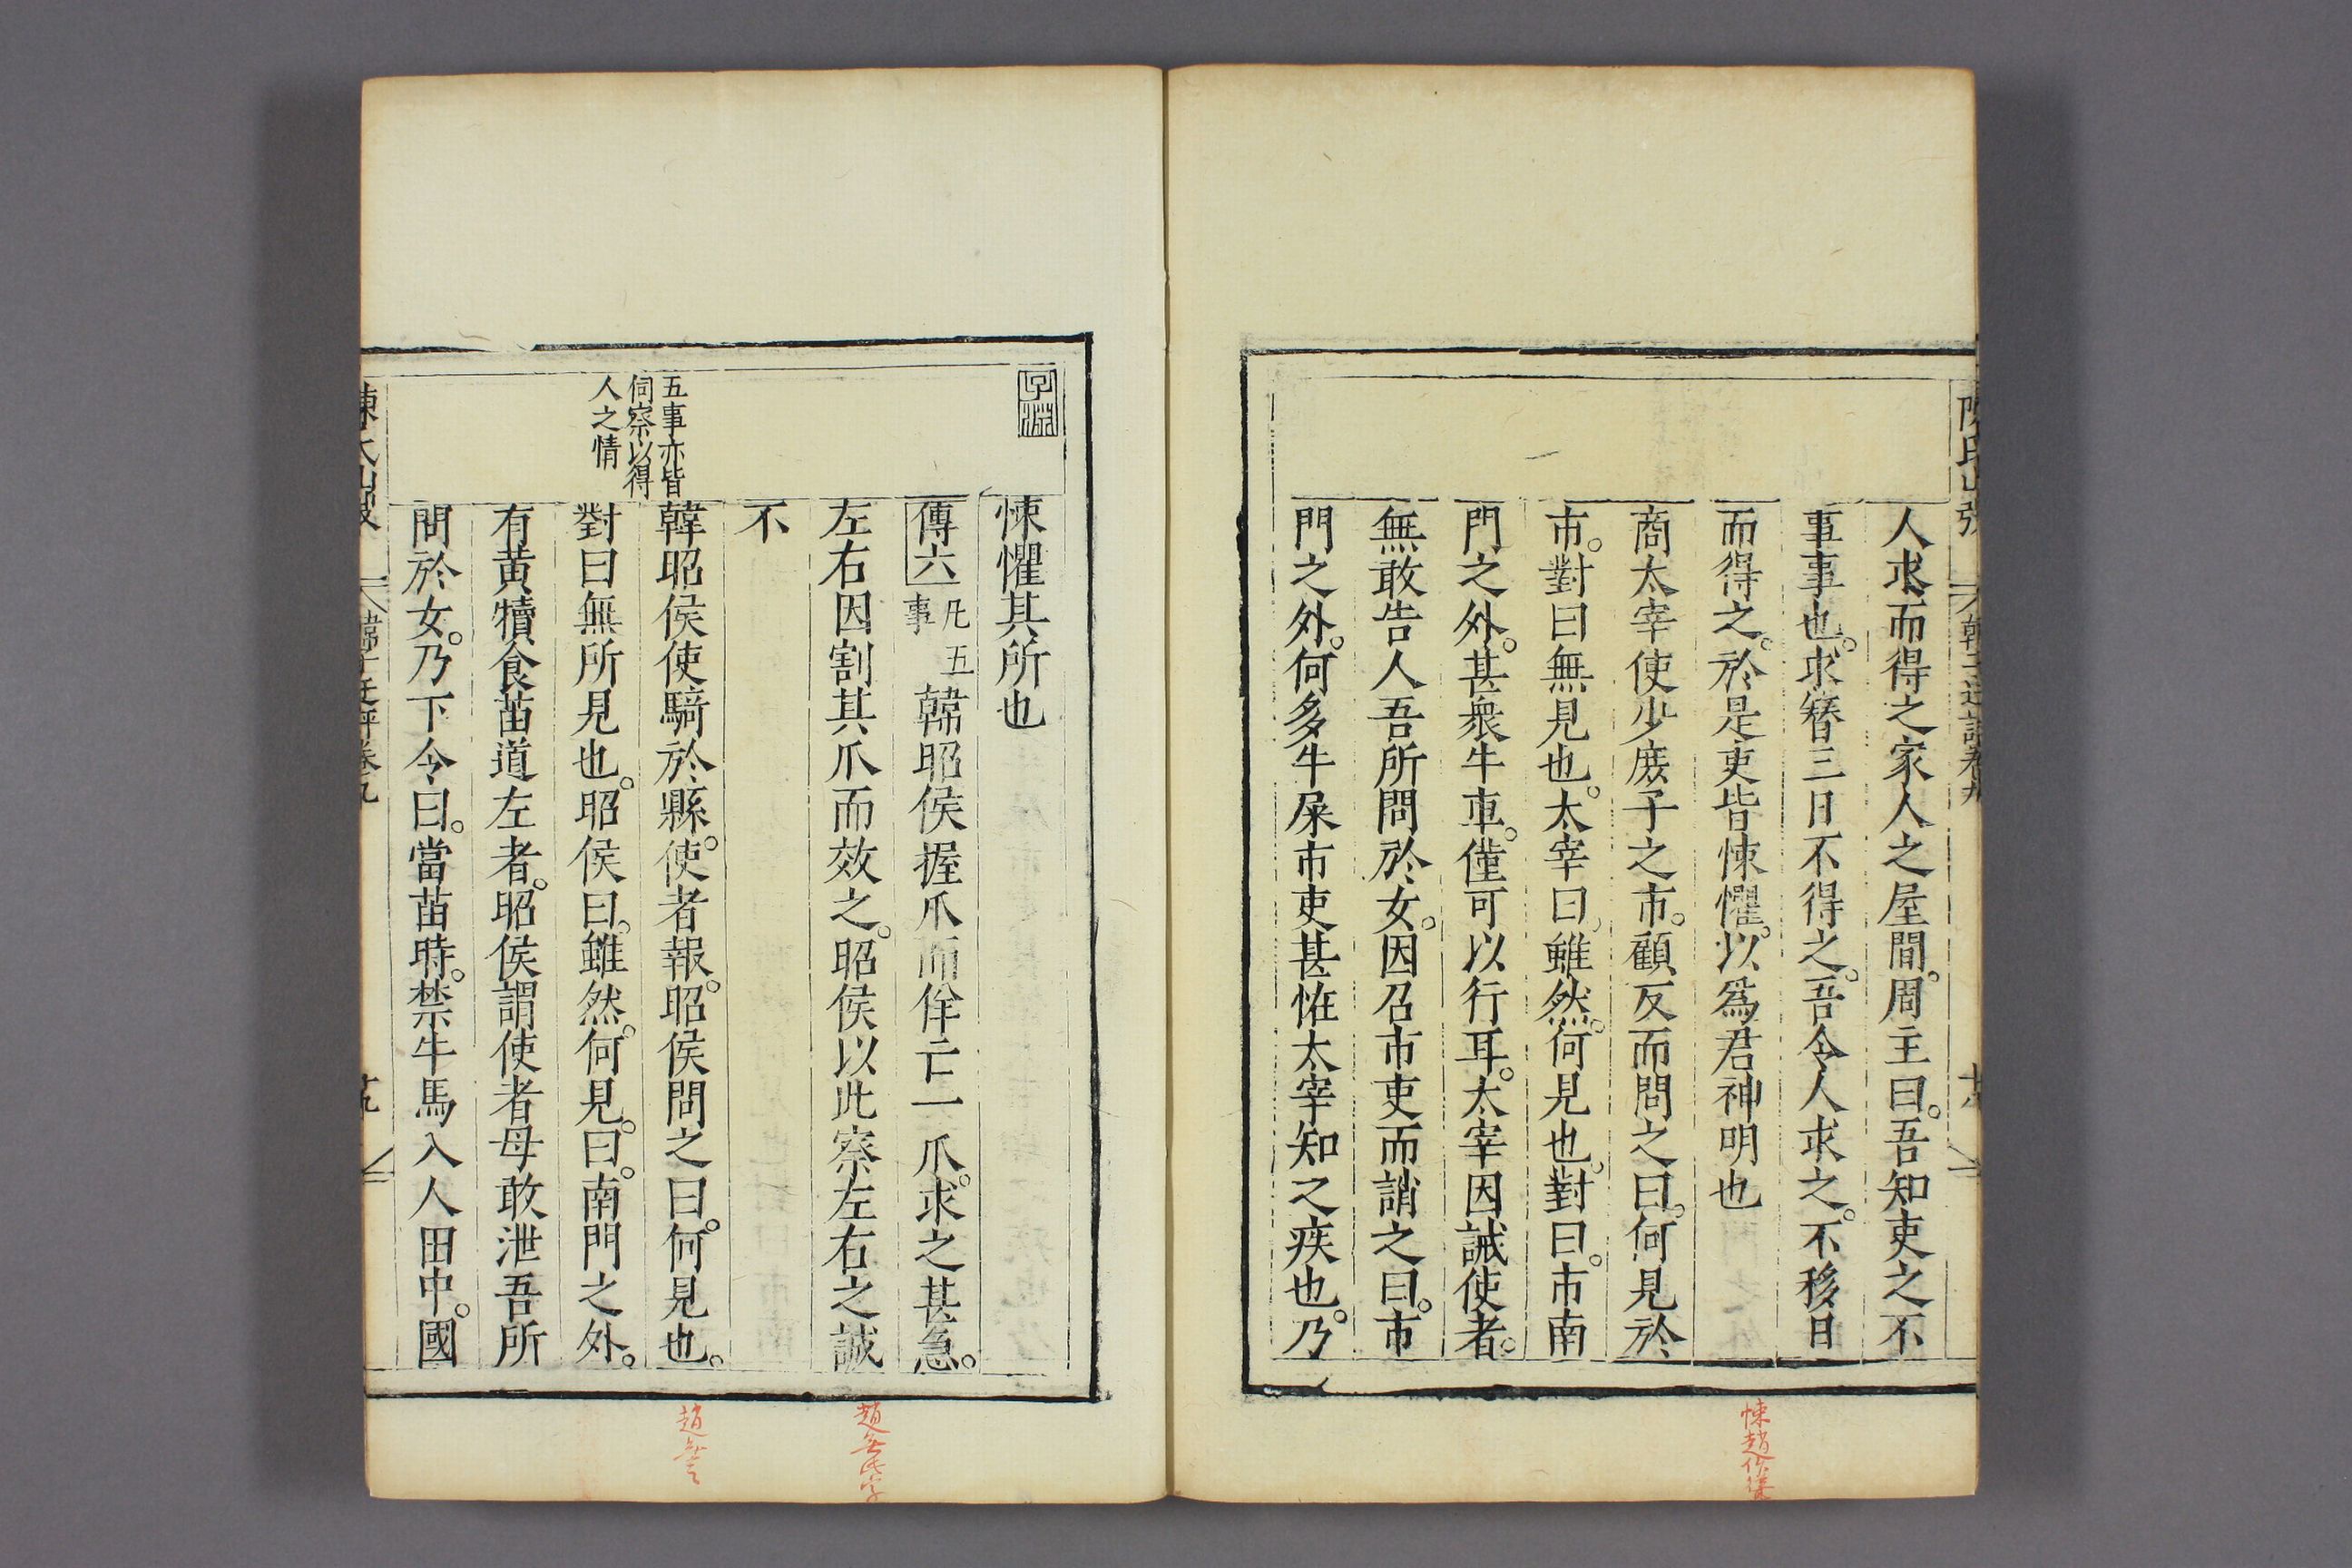 人求而得之家人之屋間。周主曰。吾知吏之不
事事也。求簪三日不得之。吾令人求之。不移日
而得之。於是吏皆悚懼。以爲君神明也
商太宰使少庶子之市。顧反而問之曰。何見於
市。對曰無見也。太宰曰。雖然。何見也。對曰。市南
門之外。甚衆牛車。僅可以行耳。太宰因誡使者。
無敢告人吾所問於女。因召市吏而誚之曰。市
門之外。何多牛屎市吏甚怪太宰知之疾也。乃
悚趙作
悚懼其所也
傳六
凡五
事
韓昭侯握爪而佯亡一爪。求之甚急。
左右因割其爪而效之。昭侯以此察左右之誠
不
五事亦皆
伺察以得
人之情
韓昭侯使騎於縣。使者報。昭侯問之曰。何見也。
對曰無所見也。昭侯曰。雖然。何見。曰。南門之外。
有黃犢食苗道左者。昭侯謂使者毋敢泄吾所
問於女。乃下令曰。當苗時。禁牛馬入人田中。國
趙無
趙無